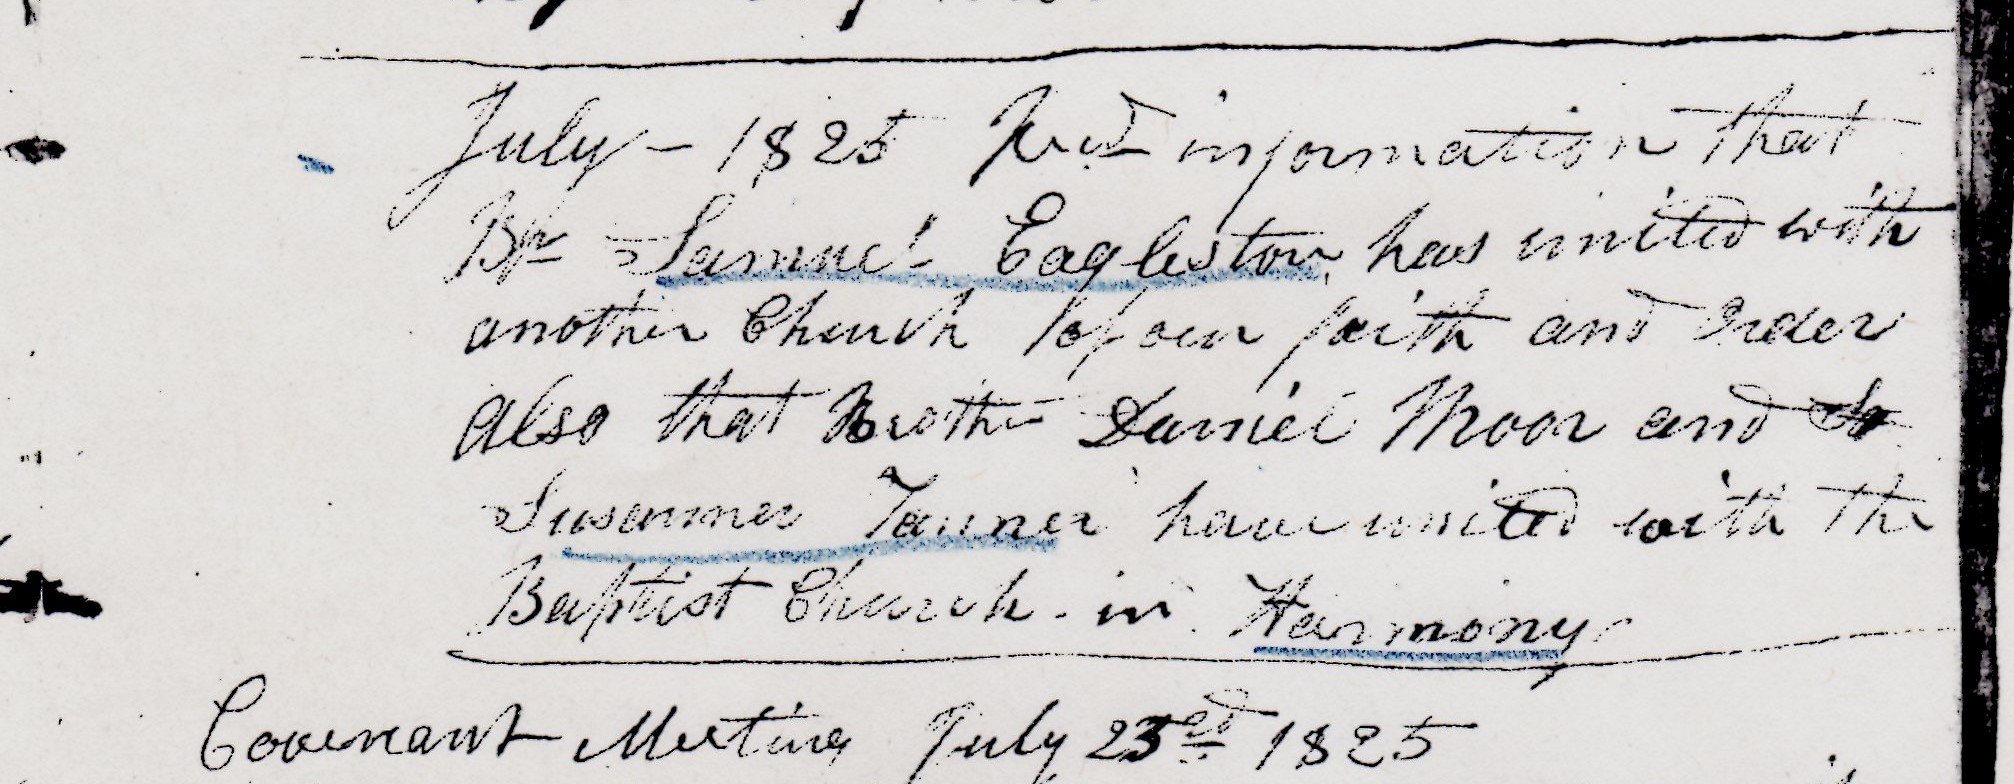 July - 1825 Recd information that
Br Samuel Eagleston has united with
another Church of our faith and order
also that Brother Daniel Moor and
Susanner Tanner have united with the
Baptist Church - in Harmony
Covenant Meeting July 23rd 1825